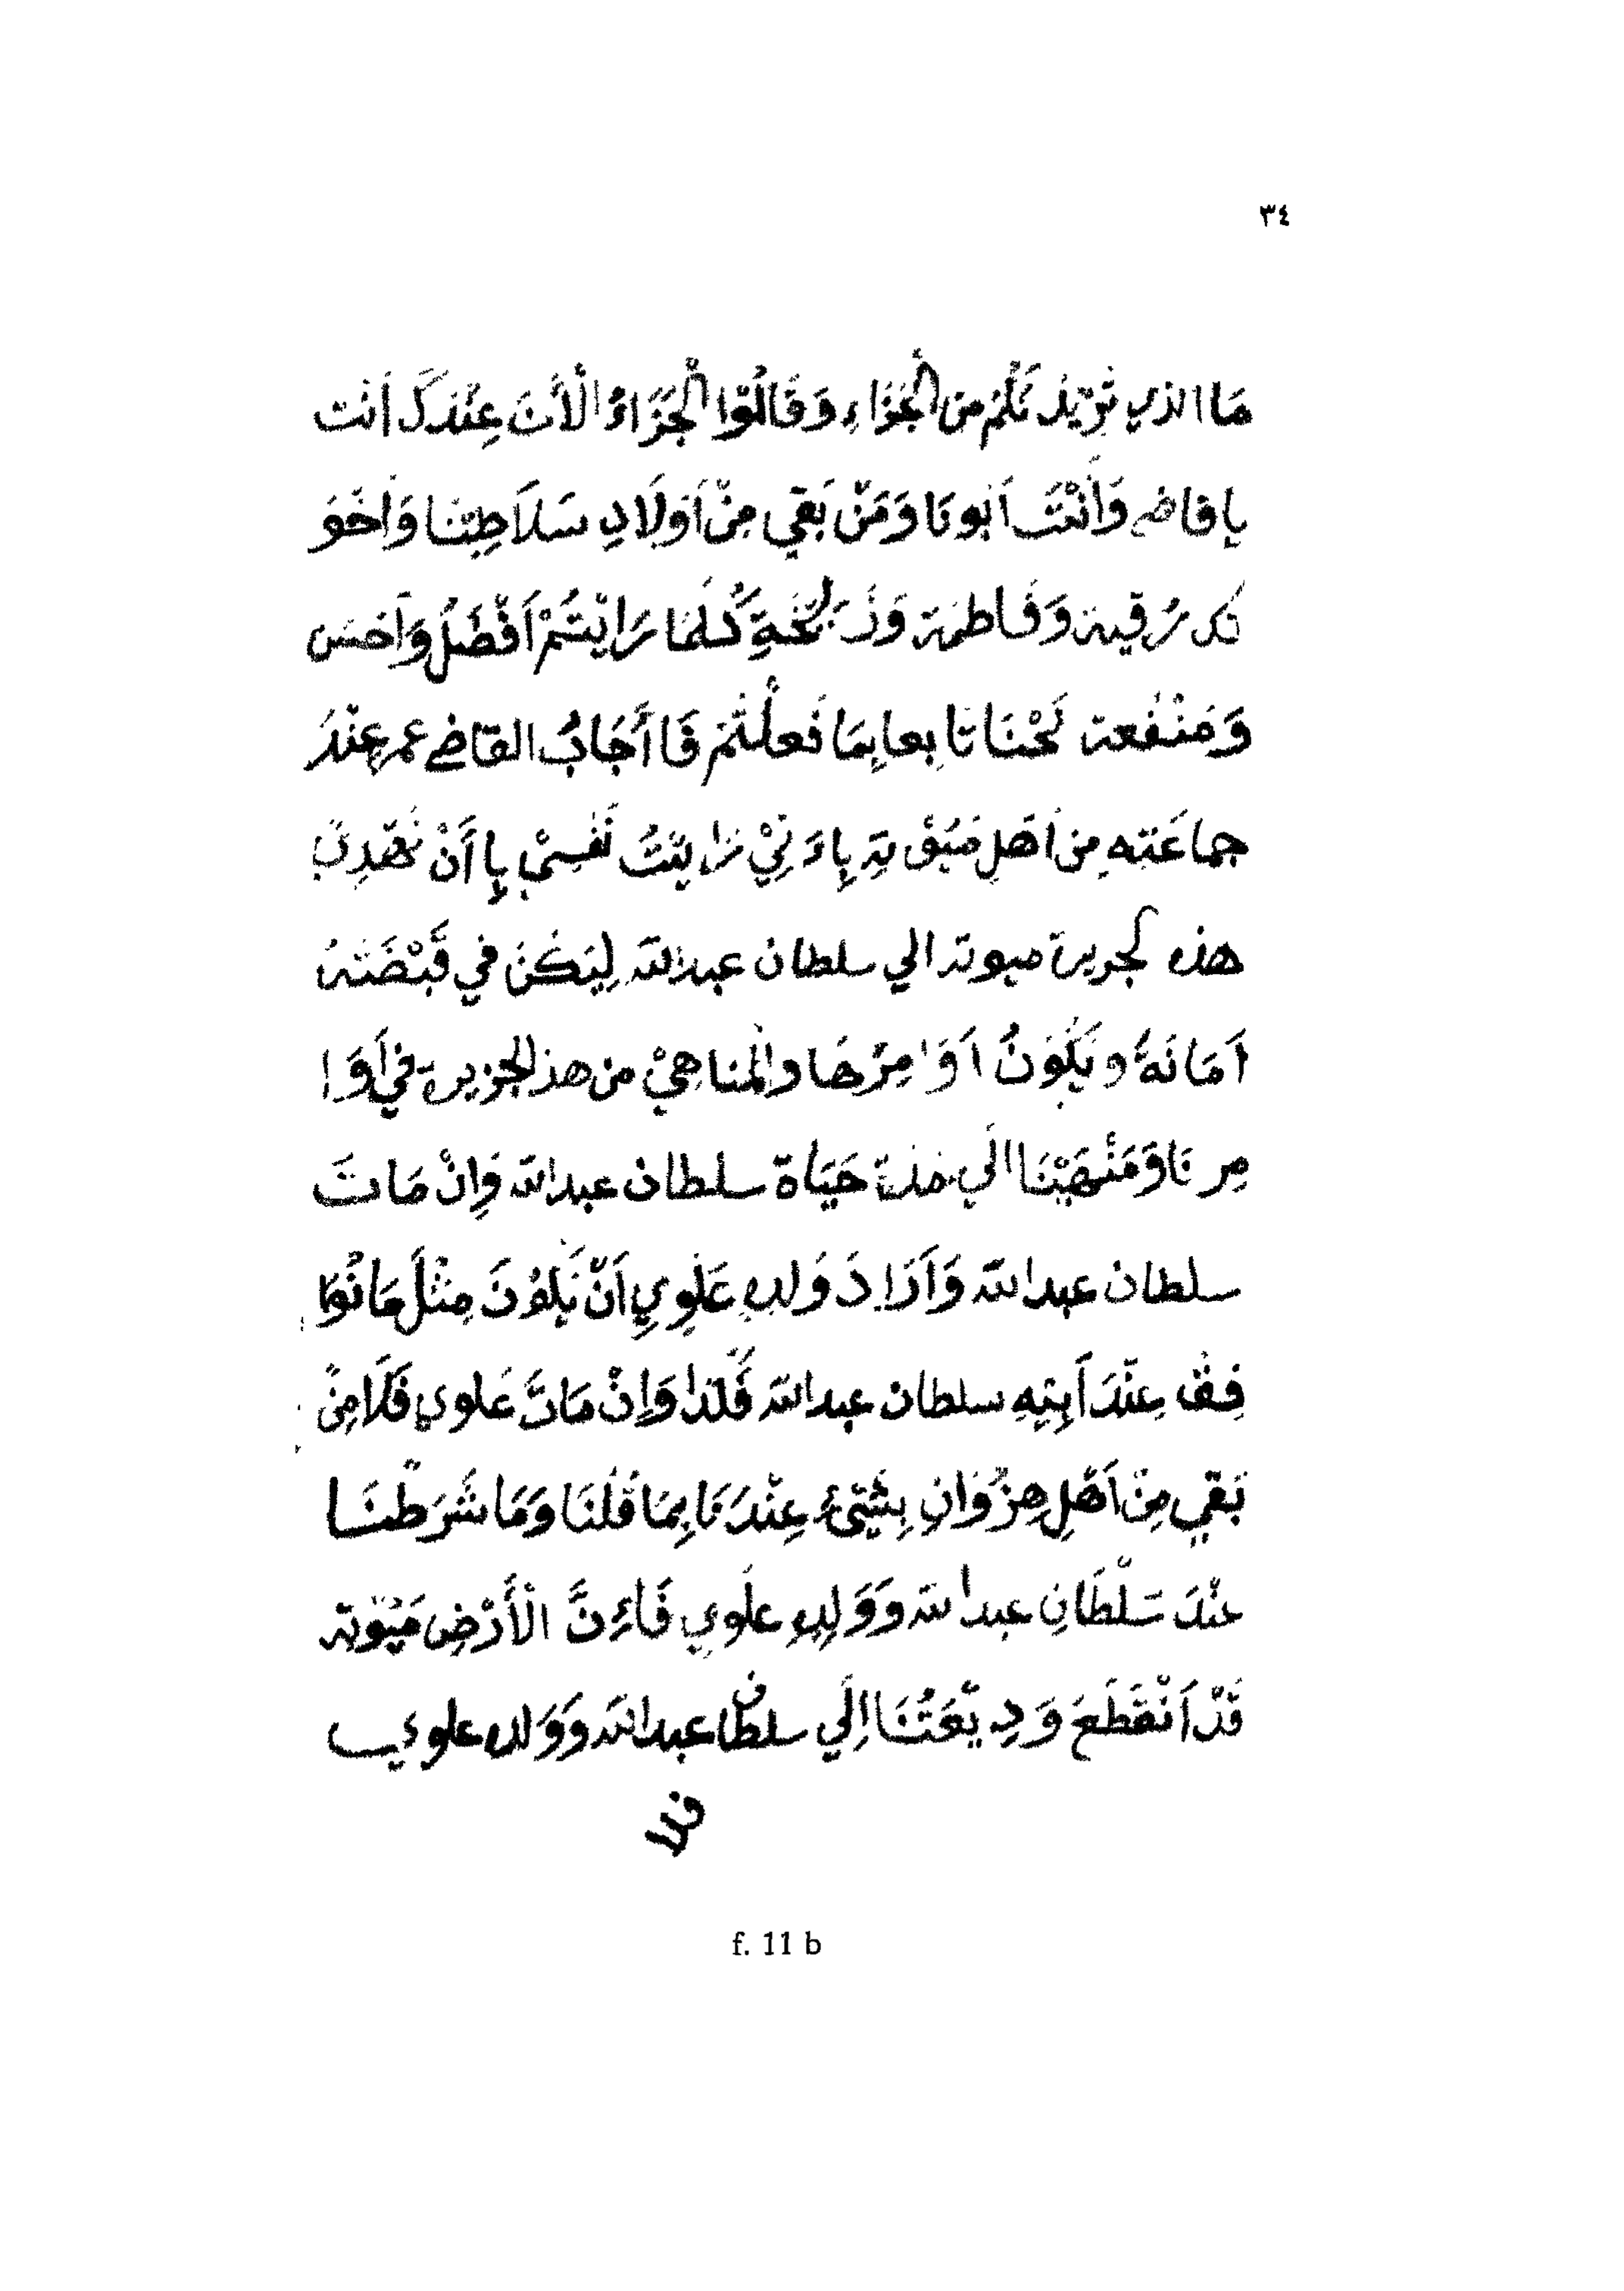 ٣٤
مَا الذي تُرِيْدُ لَكُمْ من الْجَزَاءِ وَقَالُوْا الْجَزَاءُ الْأَنَ عِنْدَكَ أنْت
يا قاضي وَأَنْتَ اَبُونَا وَمَنْ بَقِي مِنْ اَوْلَادِ سَلَاطِيْنَا وَاَخَوَ
تك رقية وَفَاطمة وَزُلَيْخَةِ كُلَمَا رَايْتُمْ اَفْضَلُ وَاَحْسَن
وَمَنْفَعة نَحْنَا تابعا بِمَا فَعلْتُمْ فَا أَجَابُ القاضي عمر عِنْدَ
جماعَتِه من اَهْلِ مَيُوْتِة بِاءَنِّيْ رَايْتُ نَفْسِيْ بِا أَنْ نُهْدِيَ
هذه الجزيرة ميوتة الي سلطان عبد الله لِيَكُنَ في قَبْضَتهُ
اَمَانَةُ وَيَكُوْنُ اَوَامِرُهَا والْمناهِيْ من هذ الجزيرة في اَوَا
مِرنَا وَمَنْهَيْنَا الَي مدة حَيَاة سلطان عبد الله وَاِنْ مَاتَ
سلطان عبد الله وَاَرَادَ وَلده عَلَوِي اَنْ يَكُوْنَ مِثْلَ مَا نُوَا
فِق عِنْدَ اَبِيْهِ سلطان عبد الله فَلَهُ وَاِنْ مَاتَ عَلوي فَلَا مِنْ
بَقي مِنْ اَهْلِ هِنْزُوَانِ بِشَيْءٍ عِنْدَنَا بِمَا قُلْنَا وَمَا شَرَطْنَا
عنْدَ سَلْطَانِ عبد الله وَوَلِدِهِ علَوي فَاءِنَّ الْأَرْضِ مَيُوتة
قَدْ اَنْقَطَعَ وَدِيْعَتُنَا اِلَي سلطان عبد الله وَوَلده علوي
f. 11 b